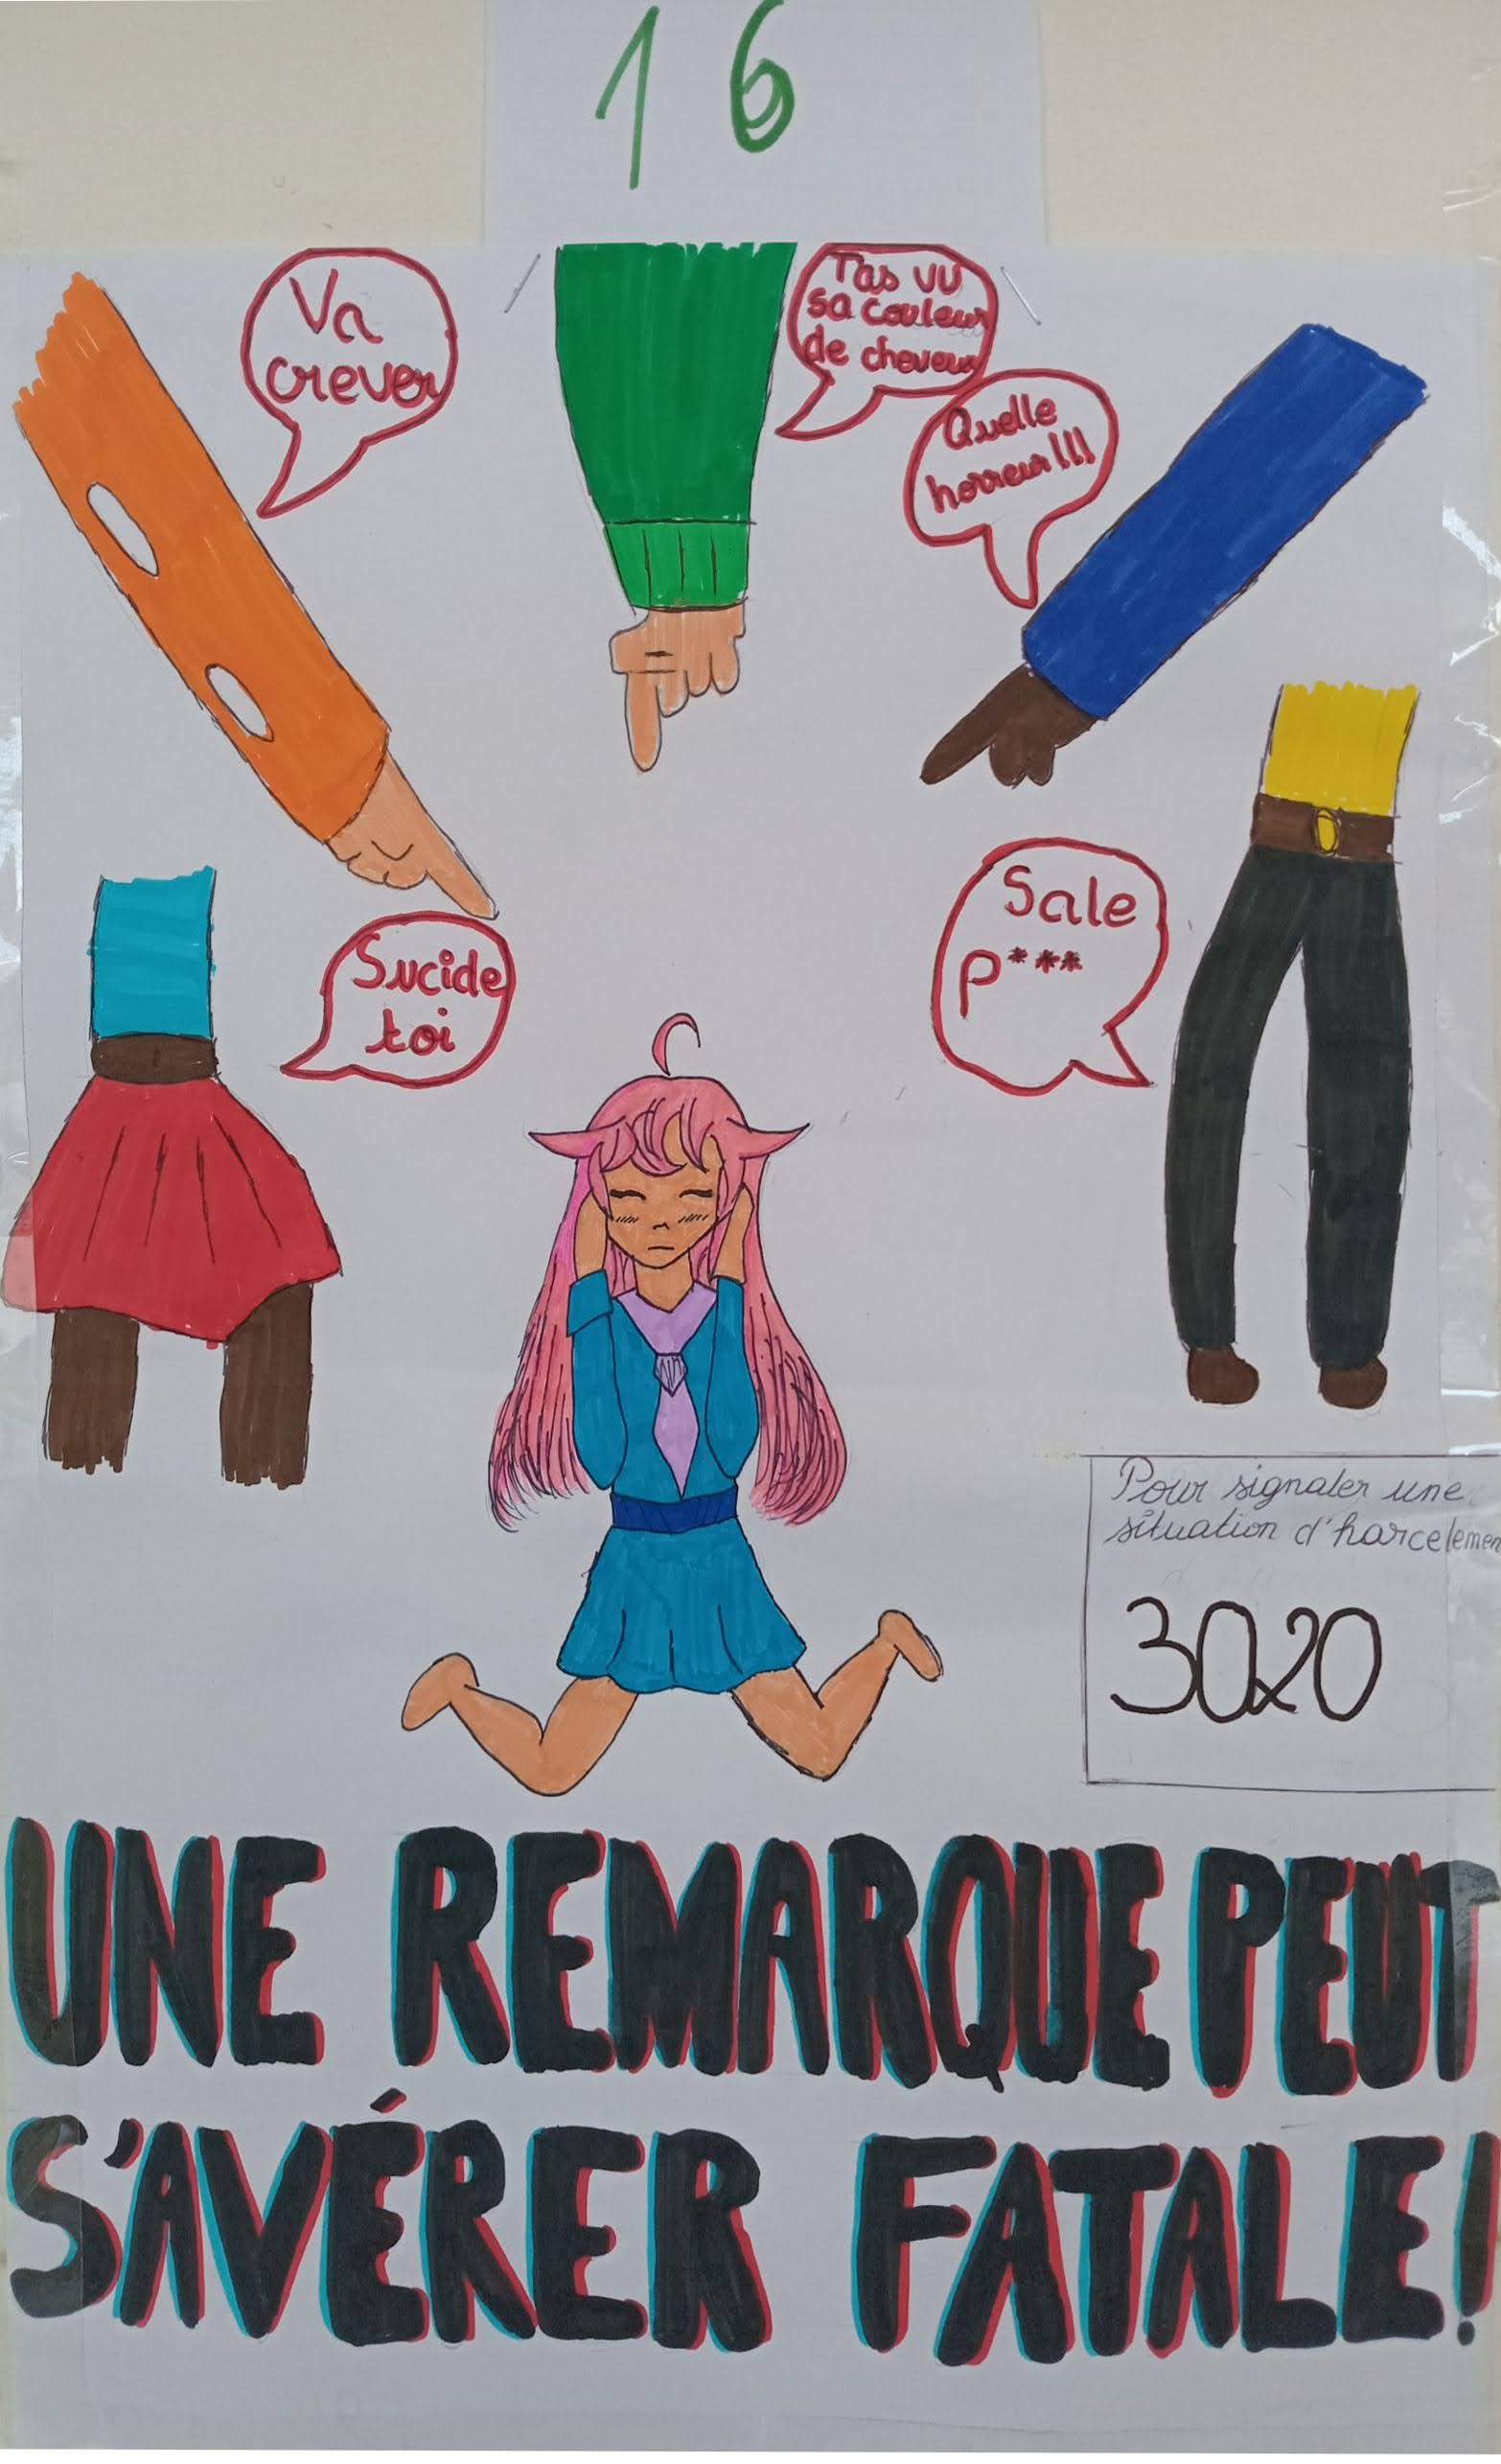 16
Va
crever
Tas vu
sa couleur
de cheveux
Quelle
horreur!!!
Sucide
toi
Sale
p***
Pour signaler une
situation d'harcelement
3020
UNE REMARQUE PEUT
S'AVÉRER FATALE!